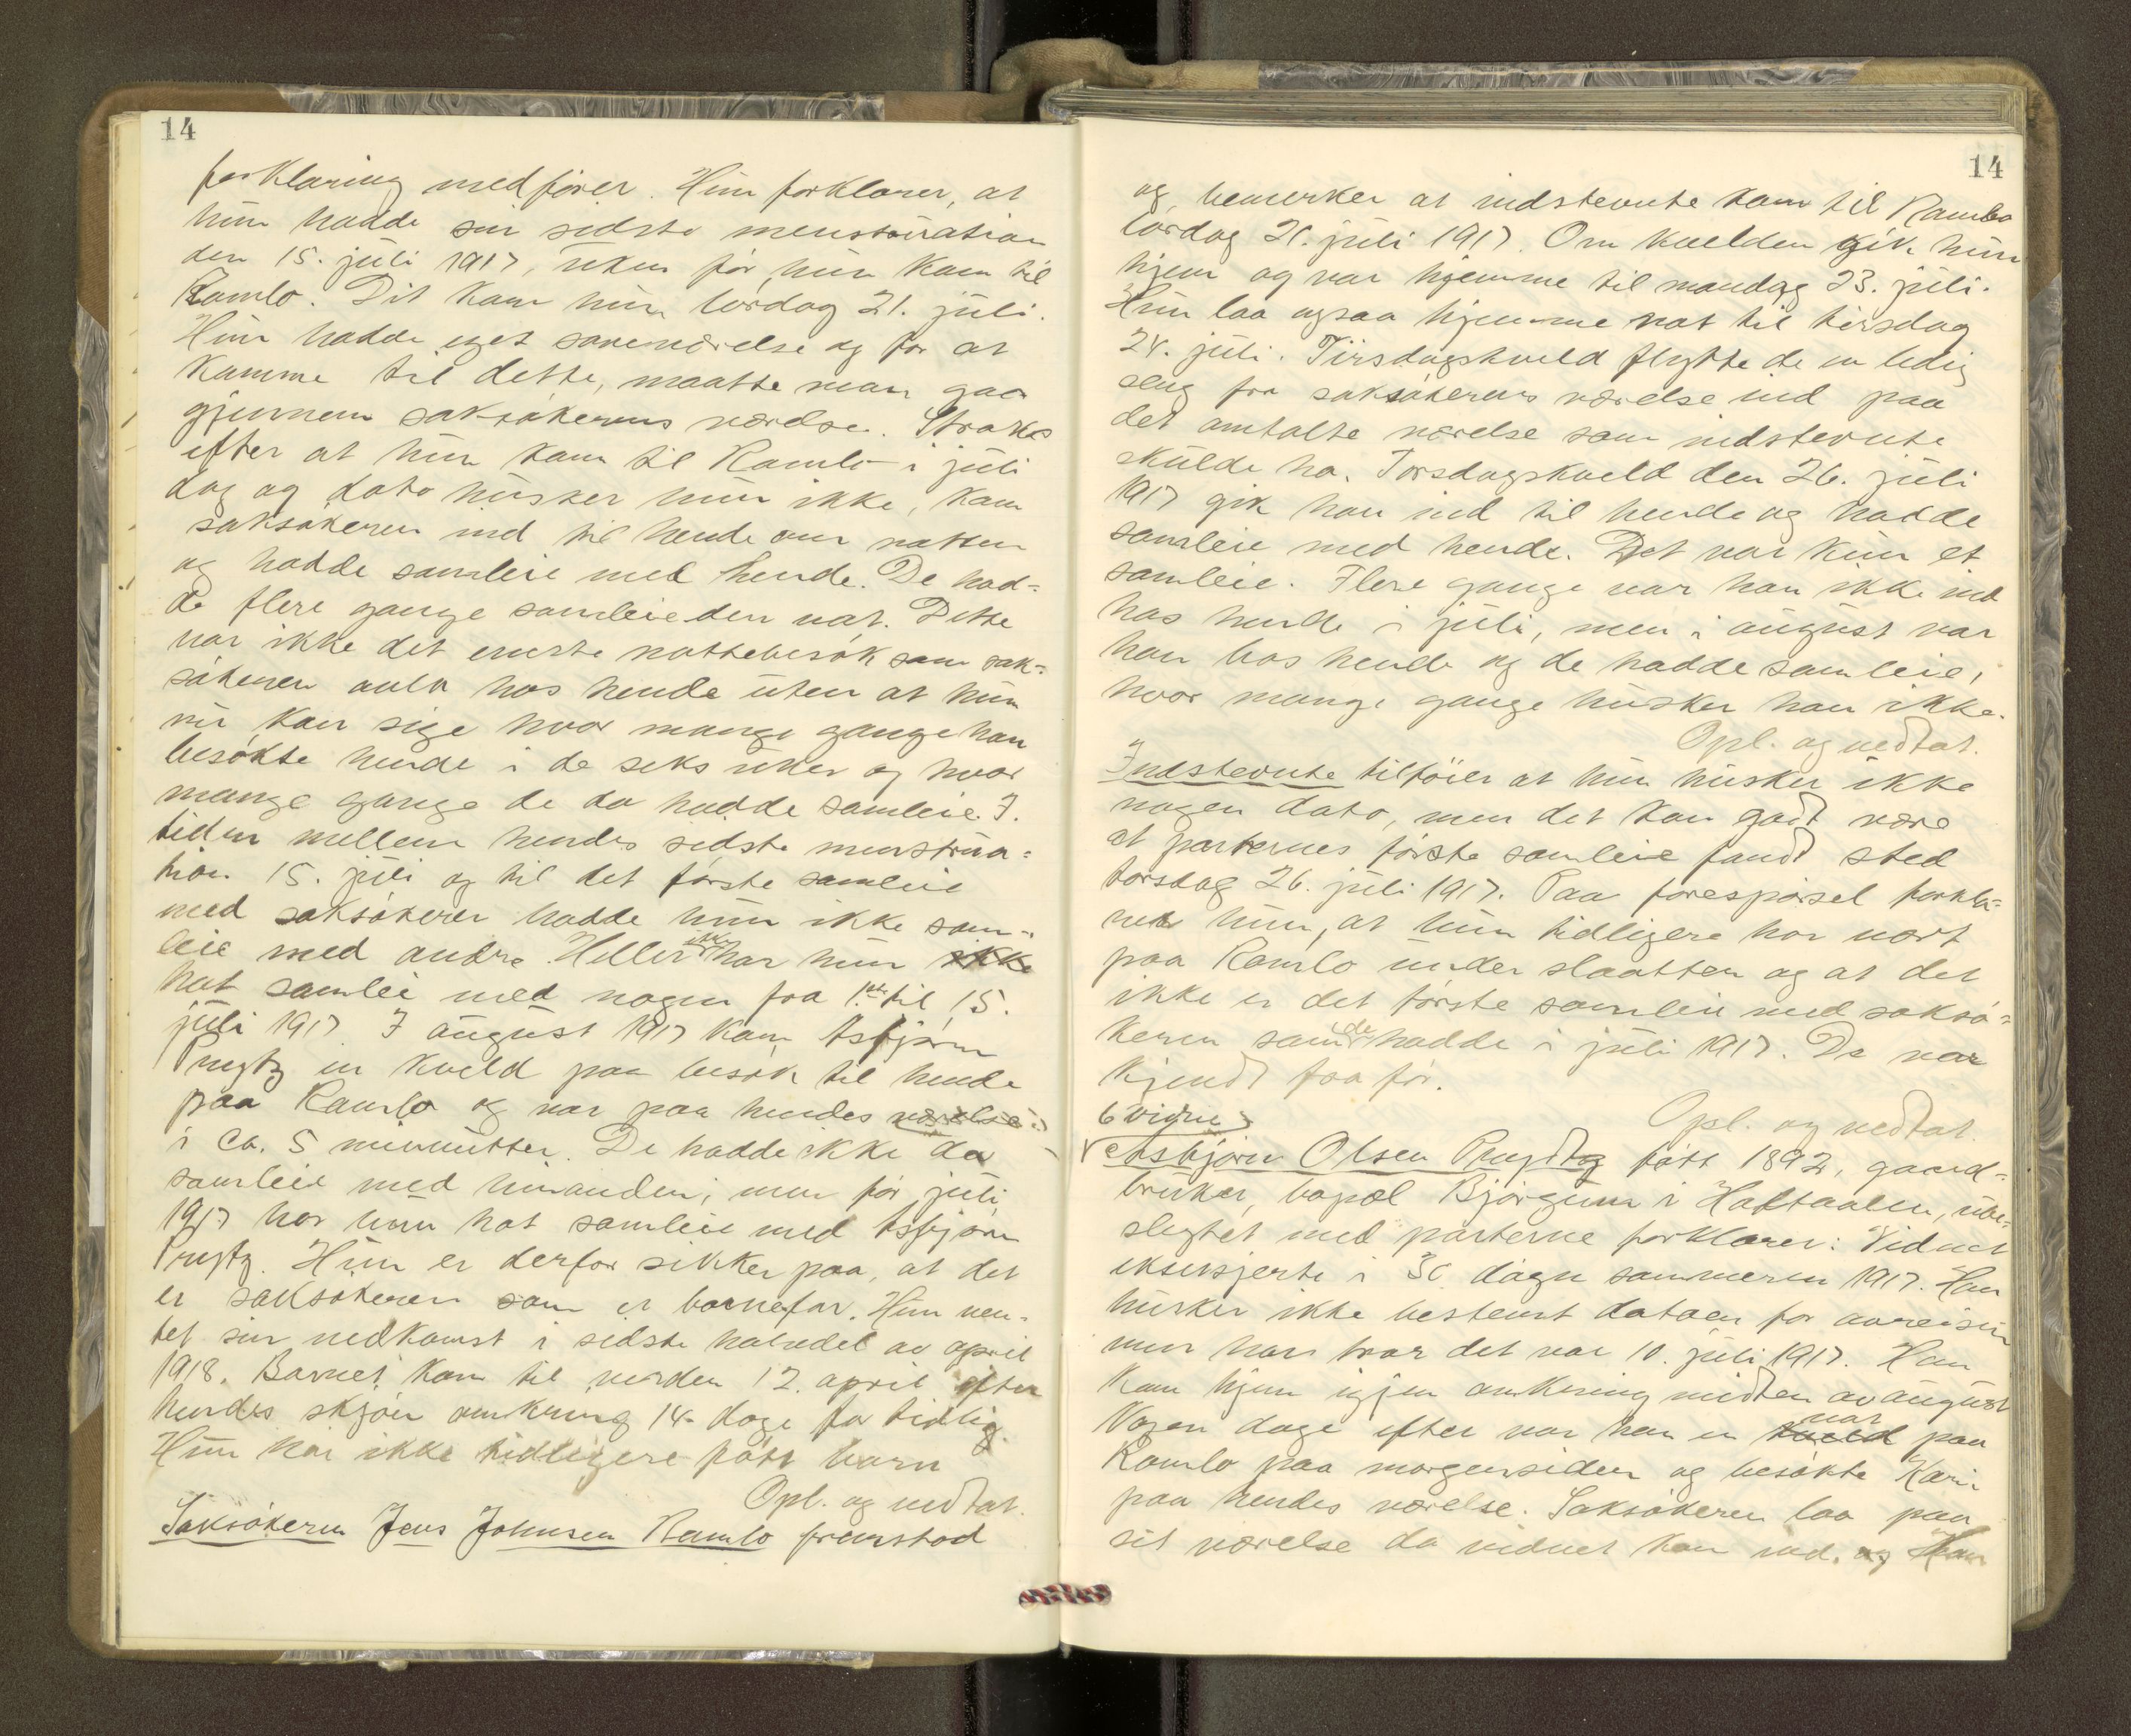 14
forklaring medfører. Hun forklarer, at
hun hadde sin sidste menstruation
den 15. juli 1917, uken før hun kom til
Ramlo. Dit kom hun lørdag 21. juli.
Hun hadde eget soveværelse og for at
komme til dette, maatte man gaa
gjennem saksøkerens værelse. Straks
efter at hun kom til Ramlo i juli
dag og dato husker hun ikke, kom
saksøkeren ind til hende om natten
og hadde samleie med hende. De had-
de flere gange samleie den nat. Dette
var ikke det eneste nattebesøk som sak-
søkeren avla hos hende uten at hun
nu kan sige hvor mange gange han
besøkte hende i de seks uker og hvor
mange gange de da hadde samleie. I
tiden mellem hendes sidste menstrua-
tion 15. juli og til det første samleie
med saksøkeren hadde hun ikke sam-
leie med andre. Heller ikke har hun ikke
hat samleie med nogen fra 1ste til 15.
juli 1917. I august 1917 kom Asbjørn
Prytz en kveld paa besøk til hende
paa Ramlo og var paa hendes værelse
i ca. 5 minnutter. De hadde ikke da
samleie med hinanden; men før juli
1917 har hun hat samleie med Asbjørn
Prytz. Hun er derfor sikker paa, at det
er saksøkeren som er barnefar. Hun ven-
tet sin nedkomst i sidste halvdel av april
1918. Barnet kom til verden 12. april efter
hendes skjøn omkring 14 dage for tidlig.
Hun har ikke tidligere født barn
Opl. og vedtat.
Saksøkeren Jens Johnsen Ramlo fremstod
14
og bemerker at indstevnte kom til Ramlo
lørdag 21. juli 1917. Om kvelden gik hun
hjem og var hjemme til mandag 23. juli.
Hun laa ogsaa hjemme nat til tirsdag
24. juli. Tirsdagskveld flytte de en ledig
seng fra saksøkerens værelse ind paa
det omtalte værelse som indstevnte
skulde ha. Torsdagskveld den 26. juli
1917 gik han ind til hende og hadde
samleie med hende. Det var kun et
samleie. Flere gange var han ikke ind
hos hende i juli, men i august var
han hos hende og de hadde samleie,
hvor mange gange husker han ikke.
Opl. og vedtat.
Indstevnte tilføier at hun husker ikke
nogen dato, men det kan godt være
at parternes første samleie fandt sted
torsdag 26. juli 1917. Paa forespørsel forkla-
rer hun, at hun tidligere har vært
paa Ramlo under slaatten og at det
ikke er det første samleie med saksø-
keren som de hadde i juli 1917. De var
kjendt fra før.
Opl. og vedtat.
6 vidne
Asbjørn Olsen Prydtz født 1892, gaard-
bruker, bopæl Bjørgum i Haltdalen, ube-
slegtet med parterne forklarer: Vidnet
eksersjerte i 30 døgn sommeren 1917. Han
husker ikke bestemt datoen for avreisen
men han tror det var 10. juli 1917. Han
kom hjem igjen omkring midten av august
Nogen dage efter var han en kveld nat paa
Ramlo paa morgensiden og besøkte Kari
paa hendes værelse. Saksøkeren laa paa
sit værelse da vidnet kom ind. og Han